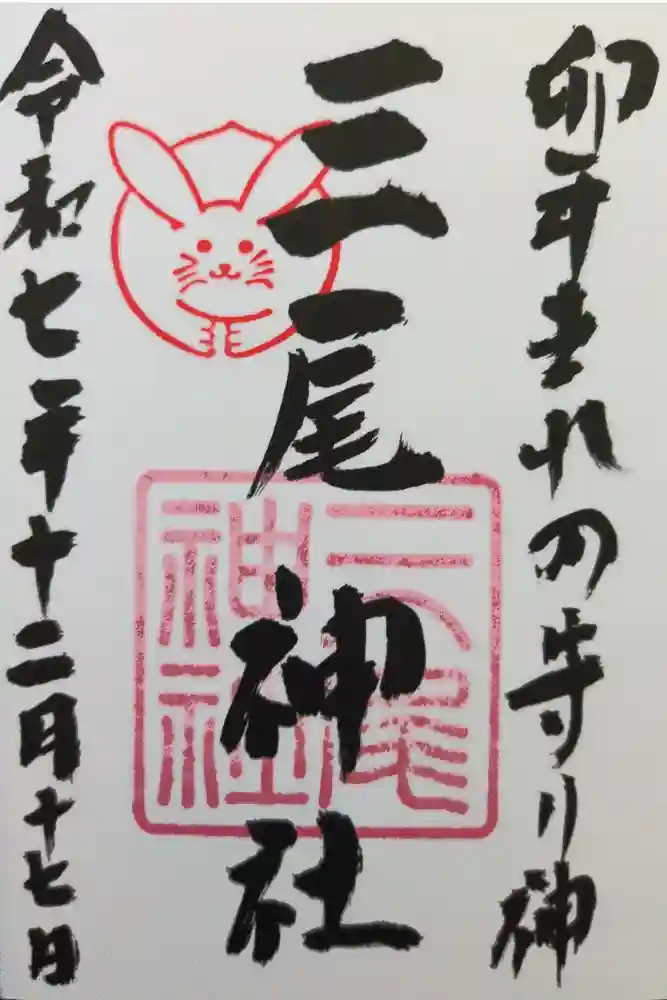 卯年生れの守り神
三尾神社
三尾神社
令和七年十二月十七日